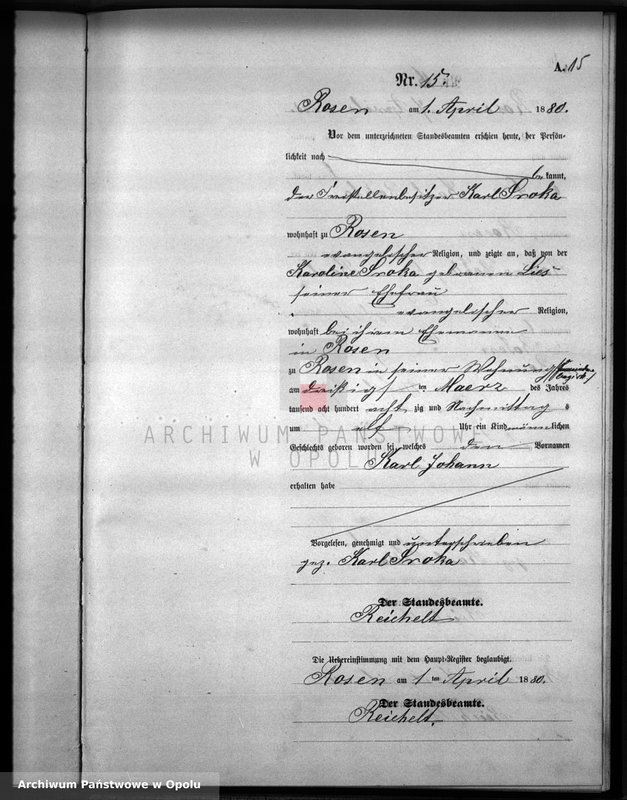 A. 15
Nr. 15.
Rosen am 1. April 1880.
Vor dem unterzeichneten Standesbeamten erschien heute, der Persön-
lichkeit nach
bekannt,
der Freistellenbesitzer Karl Sroka
wohnhaft zu Rosen
evangelischer Religion, und zeigte an, daß von der
Karoline Sroka geborenen Lies
seiner Ehefrau
evangelischer Religion,
wohnhaft bei ihrem Ehemanne
in Rosen
zu Rosen in seiner Wohnung
am dreißigsten Maerz des Jahres
tausend acht hundert achtzig und Nachmittags
um elf Uhr ein Kind männlichen
Geschlechts geboren worden sei, welches den Vornamen
Karl Johann
erhalten habe
Vorgelesen, genehmigt und unterschrieben
gez. Karl Sroka
Der Standesbeamte.
Reichelt
Die Uebereinstimmung mit dem Haupt-Register beglaubigt.
Rosen am 1 ten April 1880.
Der Standesbeamte.
Reichelt.
ARCHIWUM PAŃSTWOWE
W OPOLU
Archiwum Państwowe w Opolu